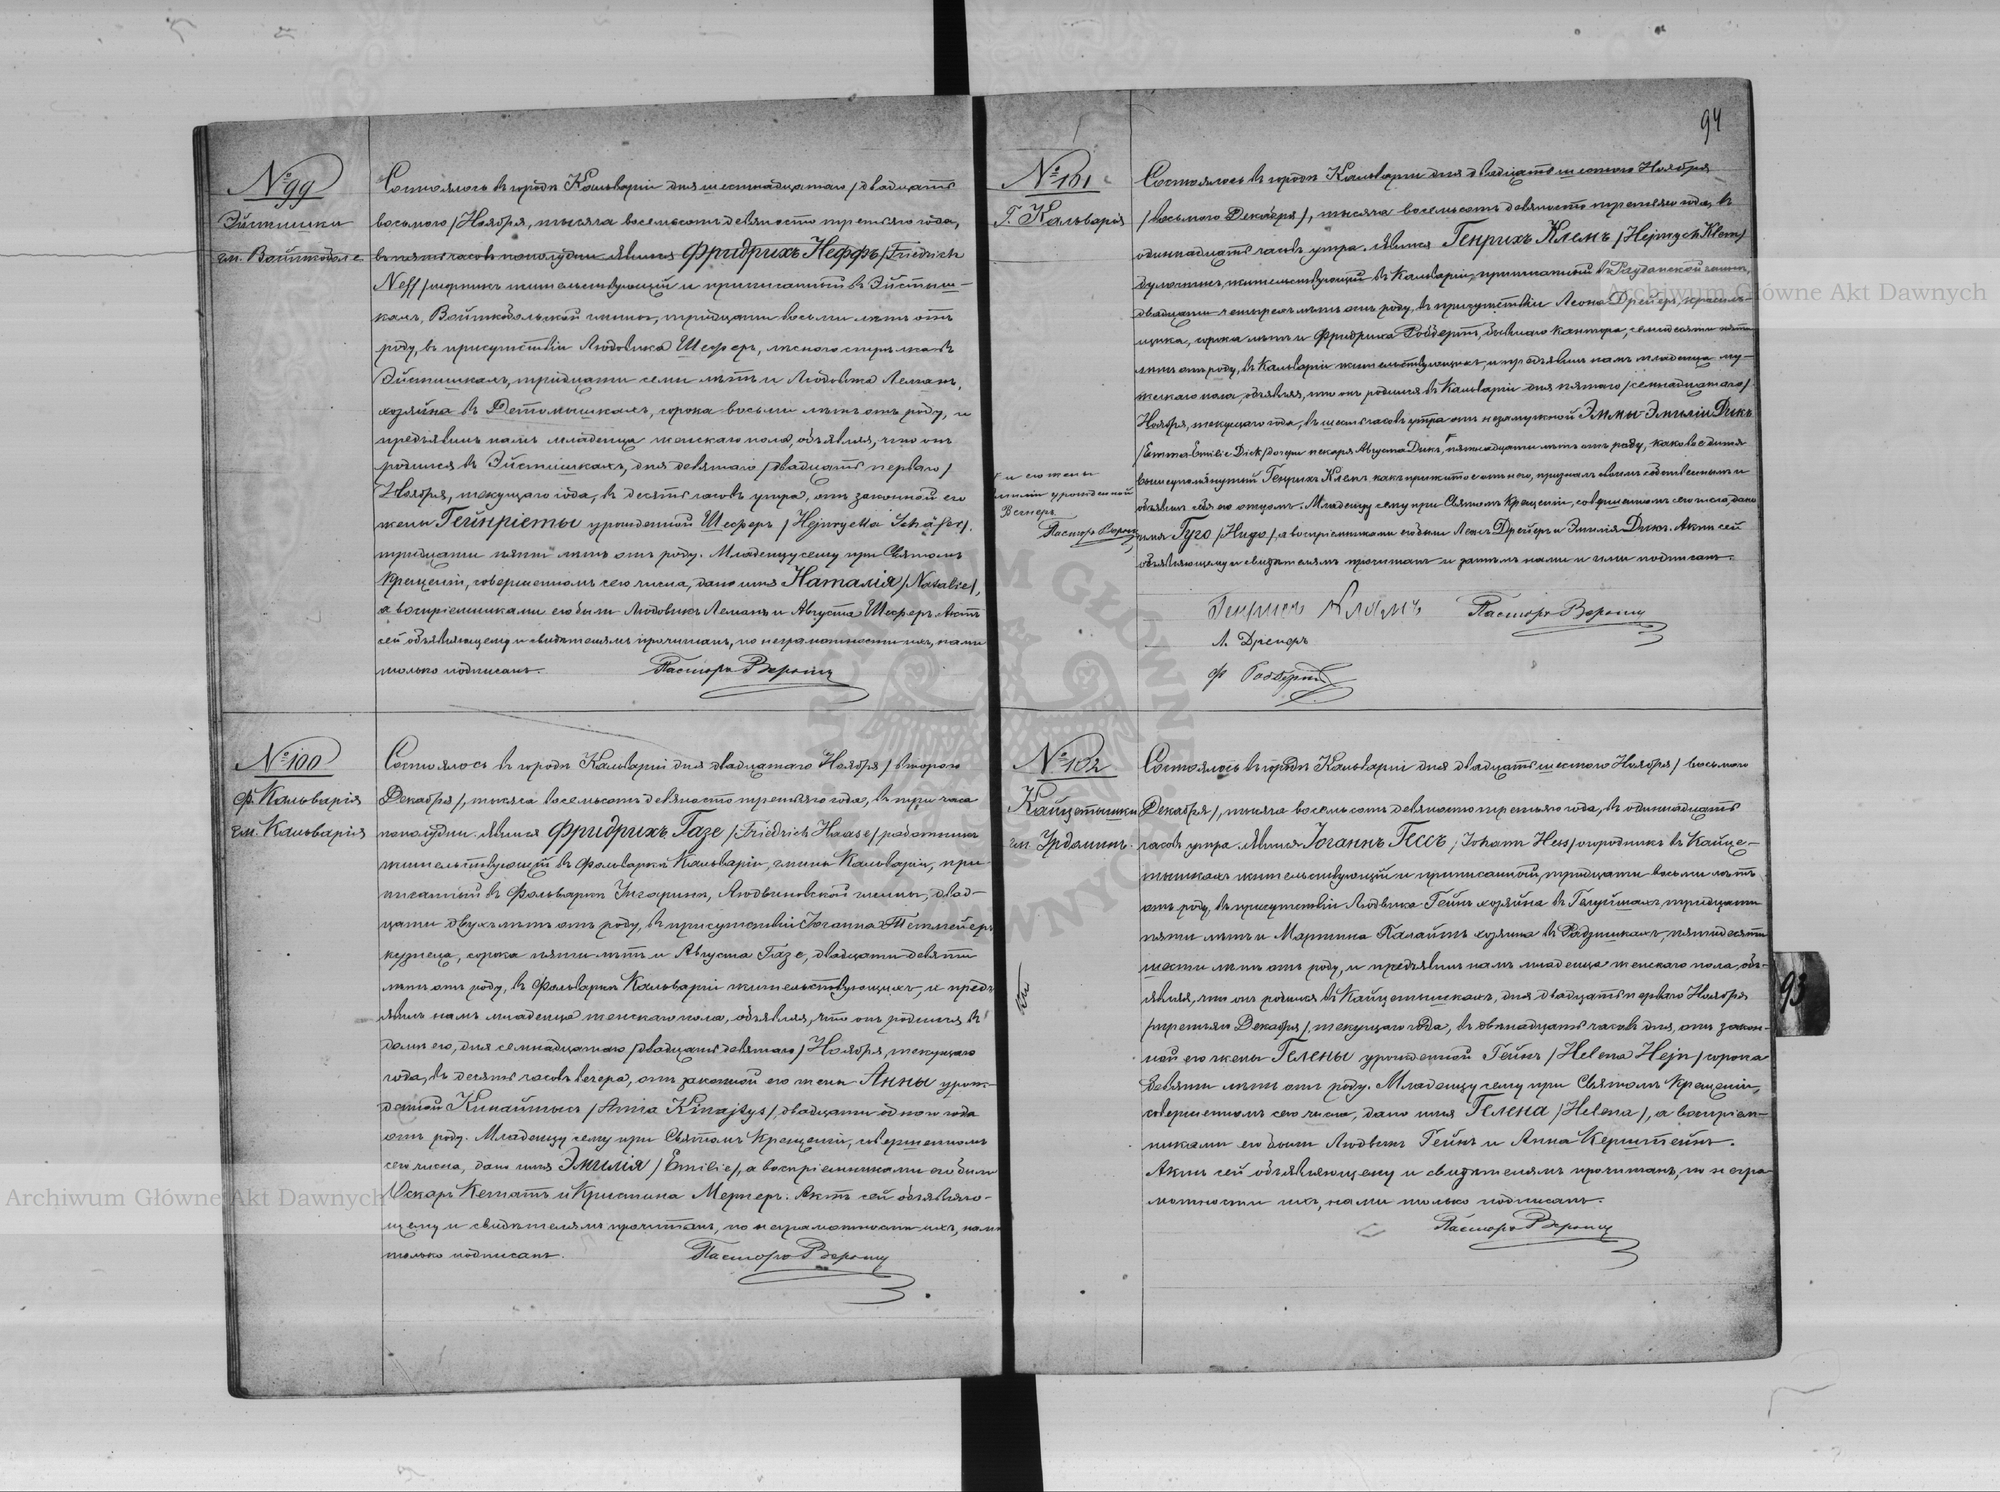 № 99
Эйстишки
гм. Войткобол
Состоялось въ городѣ Кальваріи дня шестнадцатаго /двадцать
восьмого/ Ноября, тысяча восемьсотъ девяносто третьяго года,
въ часовъ пополудни явился Фридрихъ Неффъ /Friedrich
Neff/ жительствующій и приписанный въ Эйстиш-
кахъ, Войткобольской гмины, тридцати восьми лѣтъ отъ
роду, въ присутствіи Людовика Шеферъ, лѣсного въ
Эйстишкахъ, тридцати семи лѣтъ и Людвика Леманъ,
хозяина въ сорока восьми лѣтъ отъ роду, и
предъявилъ намъ младенца женскаго пола, объявляя, что онъ
родился въ Эйстишкахъ, дня девятаго /двадцать перваго/
Ноября, текущаго года, въ десять часовъ утра, отъ законной его
жены Гейнріеты урожденной Шеферъ /Hejnryetta Schäfer/,
тридцати пяти лѣтъ отъ роду. Младенцу сему при Святомъ
Крещеніи, совершенномъ сего числа, дано имя Наталія /Natalie/,
а воспріемниками его были Людовикъ Леманъ и Августа Шеферъ. Актъ
сей объявляющему и свидѣтелямъ прочитанъ, по неграмотности ихъ, нами
только подписанъ.
Пасторъ
№ 100
ф. Кальварія
гм. Кальварія
Состоялось въ городѣ Кальваріи дня двадцатаго Ноября /второго
Декабря/, тысяча восемьсотъ девяносто третьяго года, въ три часа
пополудни явился Фридрихъ Газе /Friedrich Haase/ работникъ
жительствующій въ Фольваркѣ Кальваріи, гмины Кальваріи, при-
писанный въ Фольваркѣ Людвиновской гмины, двад-
цати двухъ лѣтъ отъ роду, въ присутствіи Іоганна
кузнеца, сорока пяти лѣтъ и Августа Газе, двадцати девяти
лѣтъ отъ роду, въ Фольваркѣ Кальваріи жительствующихъ, и предъ-
явилъ намъ младенца женскаго пола, объявляя, что онъ родился въ
домѣ его, дня семнадцатаго /двадцать девятаго/ Ноября, текущаго
года, въ десять часовъ вечера, отъ законной его жены Анны урож-
денной Кинайтысъ /Anna Kinajtys/, двадцати одного года
отъ роду. Младенцу сему при Святомъ Крещеніи, совершенномъ
сего числа, дано имя Эмилія /Emilie/, а воспріемниками его были
Оскаръ и Кристина Актъ сей объявляю-
щему и свидѣтелямъ прочитанъ, по неграмотности ихъ, нами
только подписанъ.
Пасторъ
94
№ 101
Г. Кальварія
Состоялось въ городѣ Кальваріи дня двадцать шестого Ноября
/восьмого Декабря/, тысяча восемьсотъ девяносто третьяго года, въ
одиннадцать часовъ утра. Явился Генрихъ Клемъ /Hejnrych Klem/
жительствующій въ Кальваріи, приписанный въ гминѣ,
двадцати четырехъ лѣтъ отъ роду, въ присутствіи Леона Дрейеръ, красиль-
щика, сорока лѣтъ и Фридриха бывшаго кантора, семидесяти
лѣтъ отъ роду, въ Кальваріи жительствующихъ, и предъявилъ намъ младенца му-
жескаго пола, объявляя, что онъ родился въ Кальваріи дня пятаго /семнадцатаго/
Ноября, текущаго года, въ шесть часовъ утра отъ незамужной Эммы-Эмиліи Дикъ
/Emma Emilie Dick/ дочери пекаря Августа Дикъ, пятнадцати лѣтъ отъ роду, каковое дитя
вышеупомянутый Генрихъ Клемъ, какъ прижитое отъ него, призналъ своимъ собственнымъ и
объявилъ себя его отцомъ. Младенцу сему при Святомъ Крещеніи, совершенномъ сего числа, дано
имя Гуго /Hugo/, а воспріемниками его были Леонъ Дрейеръ и Эмилія Дикъ. Актъ сей
объявляющему и свидѣтелямъ прочитанъ и затѣмъ нами и ими подписанъ.
и его жены
Эмиліи урожденной
Вегнеръ
Пасторъ
Генрихъ Клемъ
Пасторъ
Л. Дрейеръ
Ф
№ 102
Кайцетышки
гм. Урдоминъ.
Состоялось въ городѣ Кальваріи дня двадцать шестого Ноября /восьмого
Декабря/, тысяча восемьсотъ девяносто третьяго года, въ одиннадцать
часовъ утра. Явился Іоганнъ Гессъ /Johann Hess/ огородникъ въ Кайце-
тышкахъ жительствующій и приписанный, тридцати восьми лѣтъ
отъ роду, въ присутствіи Людвика Гейнъ хозяина въ тридцати
пяти лѣтъ и Мартина Палайтъ хозяина въ Радзишкахъ, пятидесяти
шести лѣтъ отъ роду, и предъявилъ намъ младенца женскаго пола, объ-
являя, что онъ родился въ Кайцетышкахъ, дня двадцать перваго Ноября
/третьяго Декабря/, текущаго года, въ двѣнадцать часовъ дня, отъ закон-
ной его жены Гелены урожденной Гейнъ /Helena Hejn/ сорока
девяти лѣтъ отъ роду. Младенцу сему при Святомъ Крещеніи,
совершенномъ сего числа, дано имя Гелена /Helena/, а воспріем-
никами его были Людвикъ Гейнъ и Анна
Актъ сей объявляющему и свидѣтелямъ прочитанъ, по негра-
мотности ихъ, нами только подписанъ.
Пасторъ
93
Archiwum Główne Akt Dawnych
Archiwum Główne Akt Dawnych